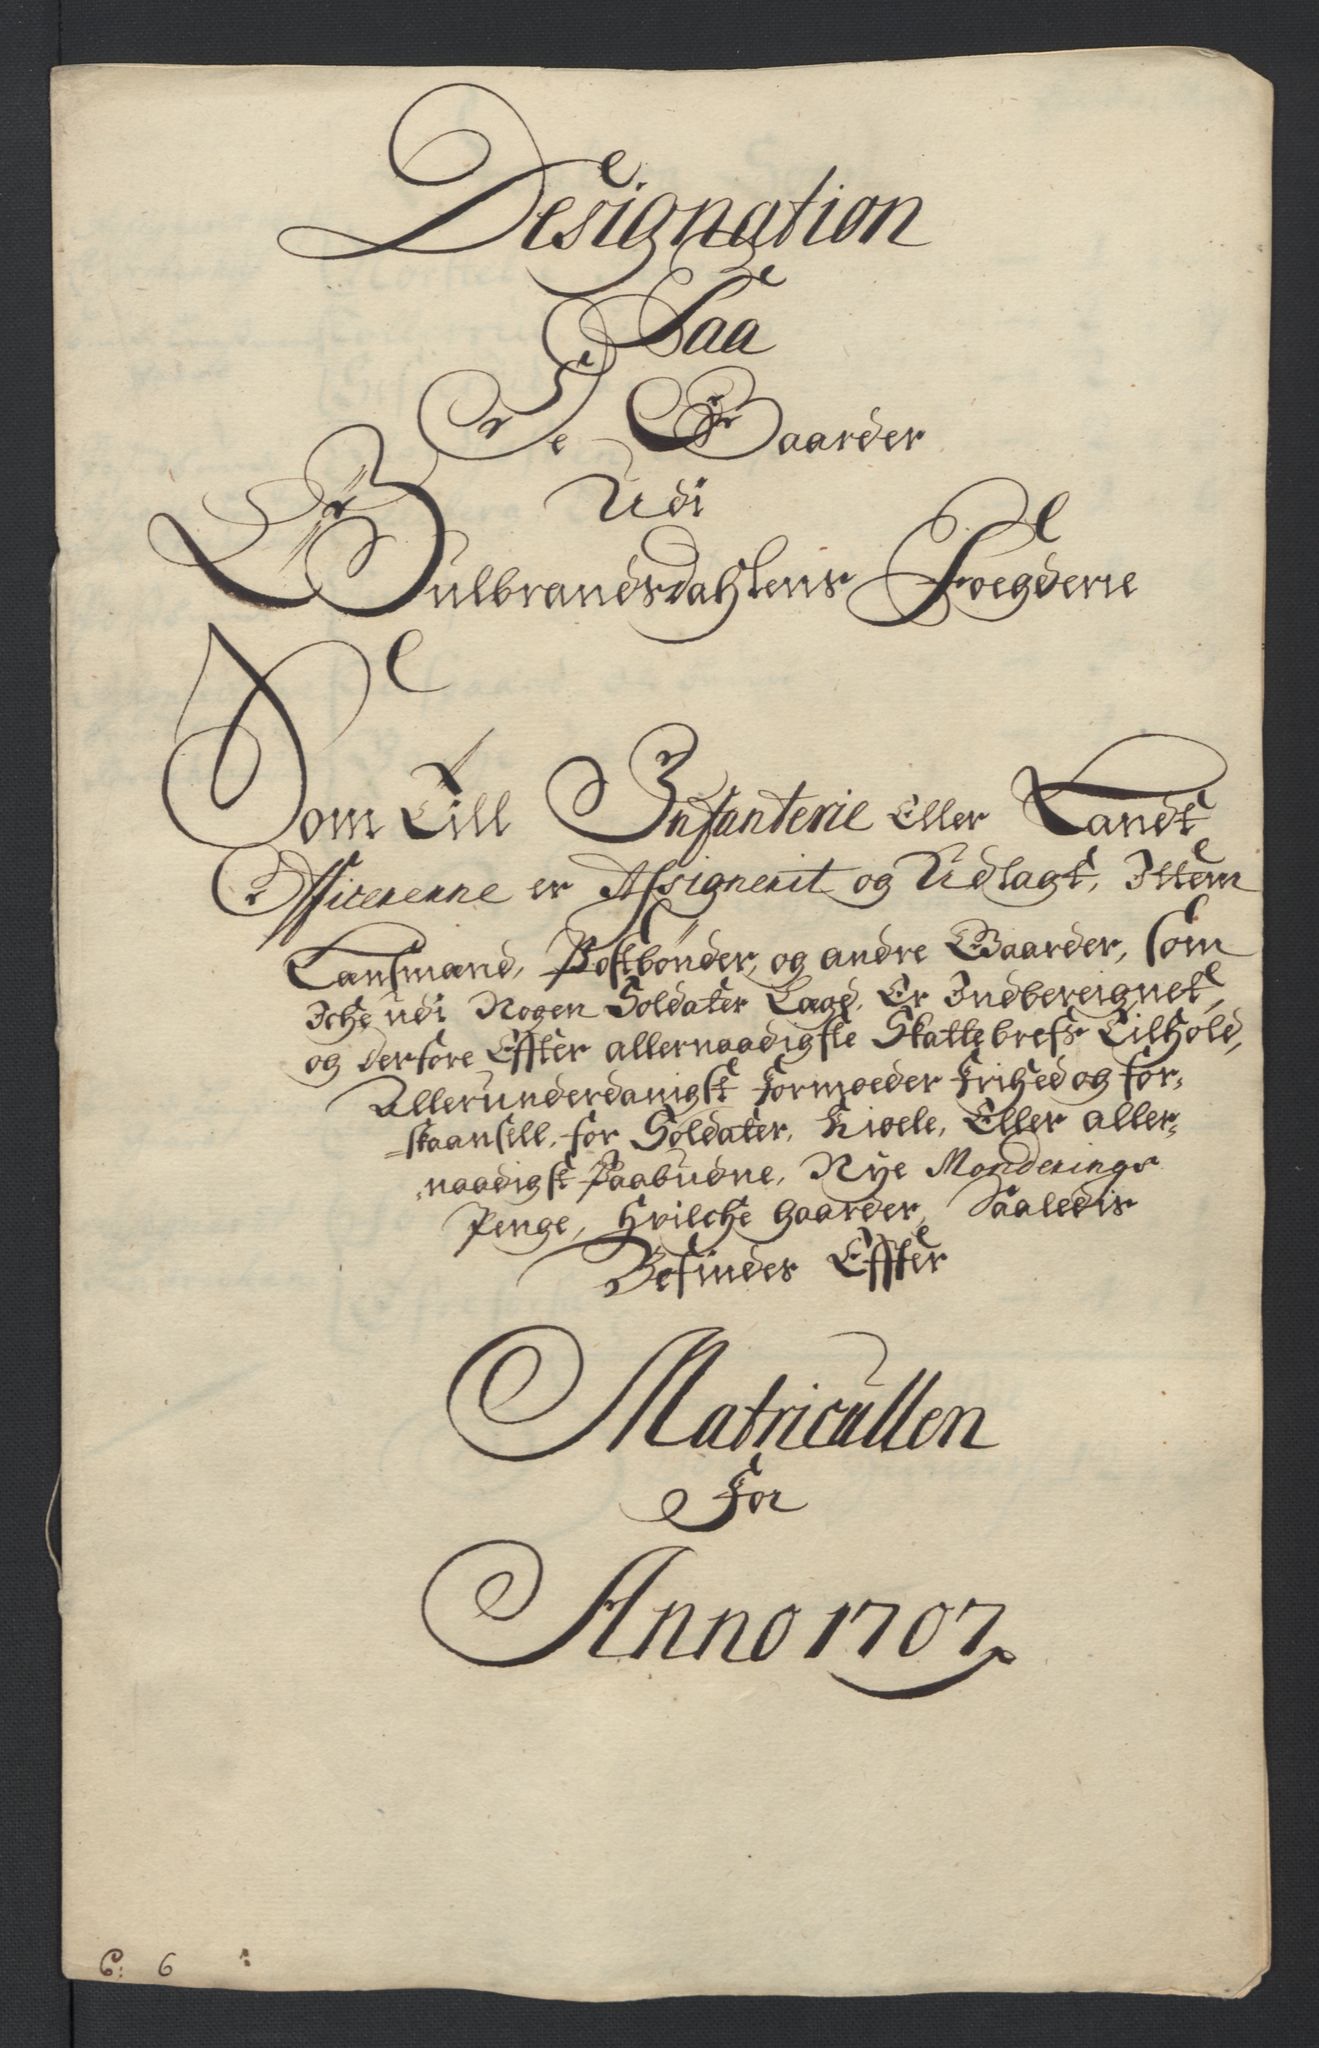 Designation
Paa
De Gaarder
Udi
Gulbrandsdahlens Foegderie
Som Till Infanterie Eller Landt
Officererne er Assignerit og Udlagt, Ittem
Lansmænd, Postbønder, og andre Gaarder, som
Iche udi Nogen Soldater Lægd, Er Indbereignet,
og derfore Effter allernaadigste Skattebrefs Tilhold,
Allerunderdanigst formoeder frihed og for,,
,,skaansell, for Soldater, Kiole, Eller aller,,
,,naadigst Paabudne, Nye Monderings
Penge, hvilche gaarder, Saaledis
Befindes Effter
Matricullen
For
Anno 1707
C: 6